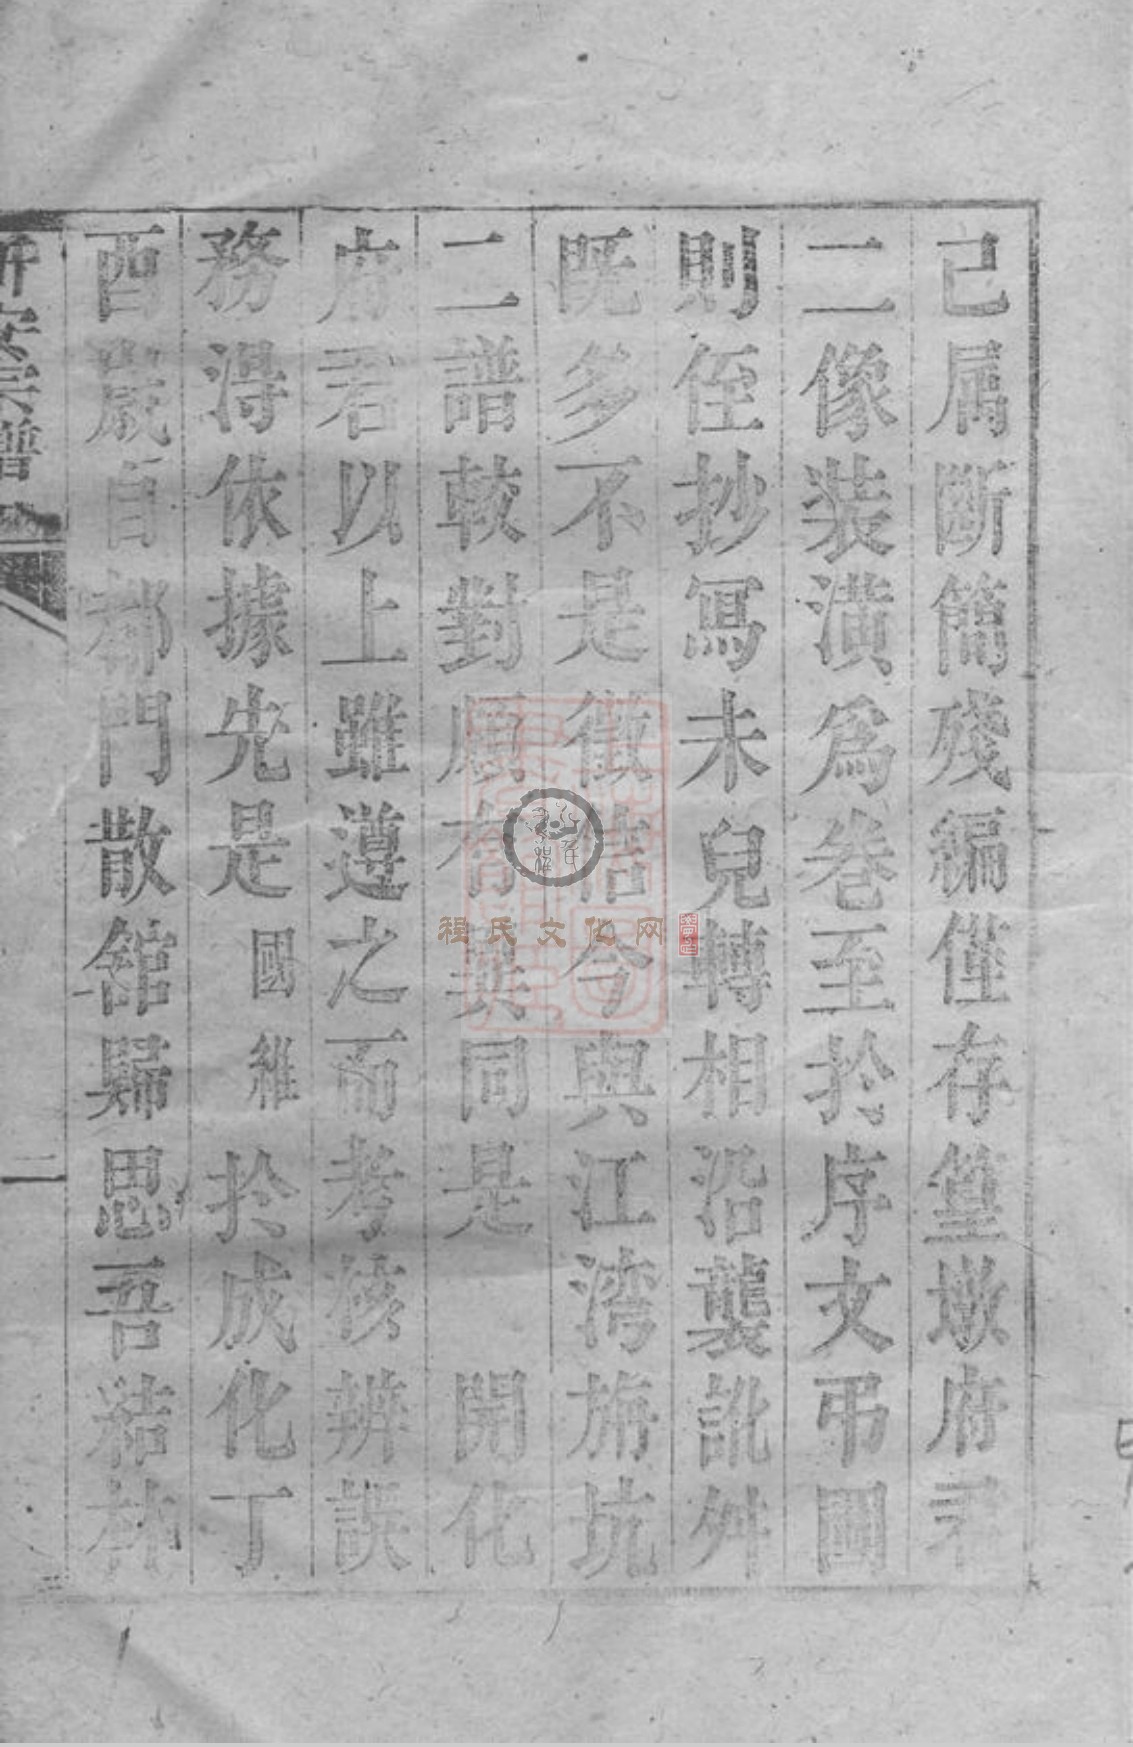 己属斷簡殘編僅存篁墩府君
二像装潢為卷至扵序文弔圖
則侄抄冩未兒轉相沿襲訛舛
既多不是徵信今與江湾旃坑
二譜較對頗有異同是 開化
府君以上雖遵之而考核辨誤
務淂依據先是國維扵成化丁
酉嵗自都門散舘歸思吾結
新安宗譜
二
程氏文化网